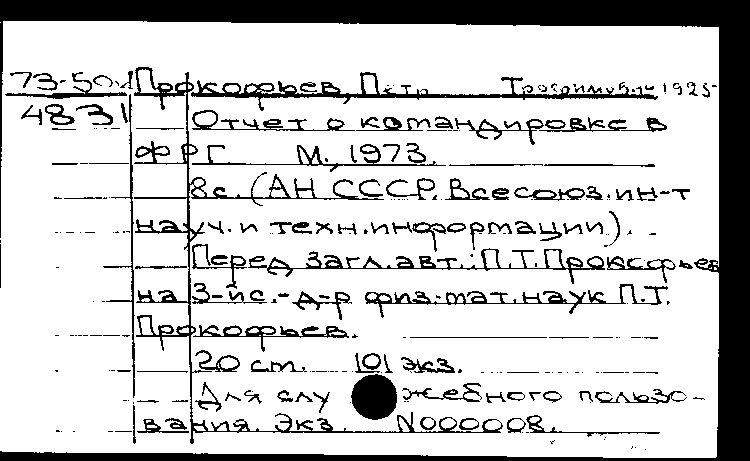 73-50 Прокофьев, Петр Трофимович 1925-
4831 Отчет о командировке в
ФРГ М., 1973.
8с. (АН СССР. Всесоюз. ин-т
науч. и техн. информации).
Перед загл. авт.: П.Т. Прокофьев
на 3-й с. - д-р физ.-мат. наук П.Т.
Прокофьев.
20 см. 101 экз.
Для служебного пользо-
вания. Экз. N000008.